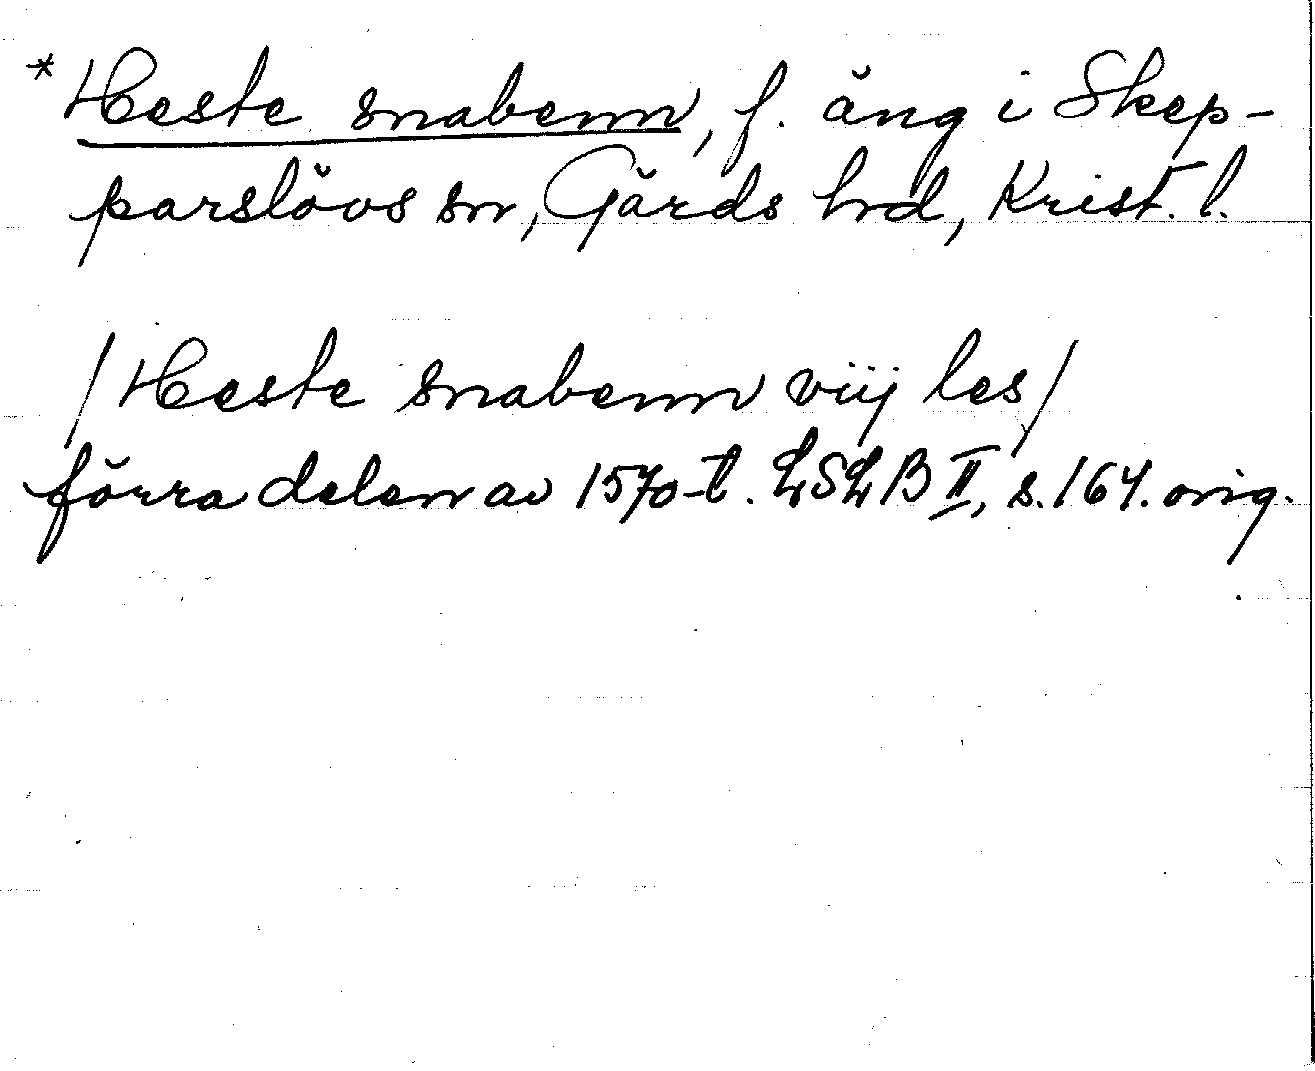 *Heste snabenn, f. äng i Skep-
parslövs sn, Gärds hrd, Krist. l.
/Heste snabenn viij les/
förra delen av 1570-t. LSLB II, s. 164. orig.